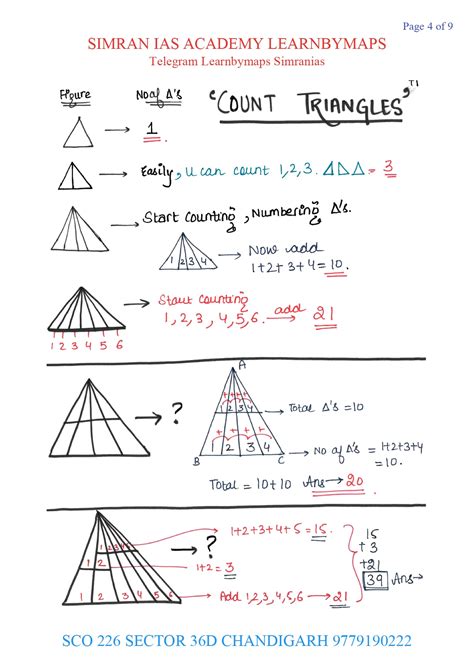 Page 4 of 9
SIMRAN IAS ACADEMY LEARNBYMAPS
Telegram Learnbymaps Simranias
Figure
No of Δ's
"COUNT TRIANGLES"
T1
1
Easily, u can count 1,2,3. ΔΔΔ = 3
Start Counting, Numbering Δ's.
1 2 3 4
Now add
1+2+3+4=10.
Start Counting
1,2,3,4,5,6. add 21
1 2 3 4 5 6
?
A
1 2 3 4
Total Δ's =10
1 2 3 4
B
C
No of Δ's = 1+2+3+4
=10.
Total = 10+10 Ans→ 20
1 2 3 4 5
1+2+3+4+5=15.
?
1 2
1+2=3
1 2 3 4 5 6
Add 1,2,3,4,5,6 → 21
15
+3
+21
39 Ans
SCO 226 SECTOR 36D CHANDIGARH 9779190222